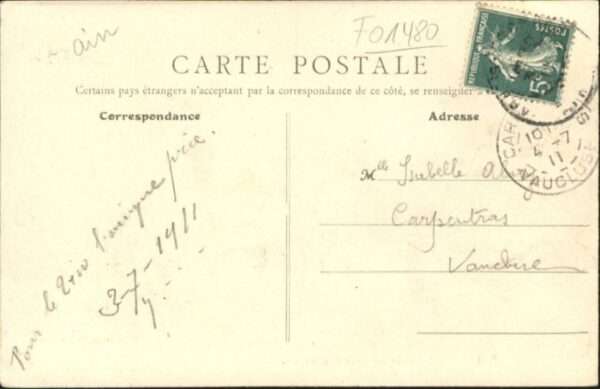 ain
F01480
CARTE POSTALE
Certains pays étrangers n'acceptant par la correspondance de ce côté, se renseigner
Correspondance
Adresse
Pour le
l'unique
3-7-1911
Mlle Isabelle
Carpentras
Vaucluse
POSTES
5
CAR
10
4-7
11
VAUCLUSE